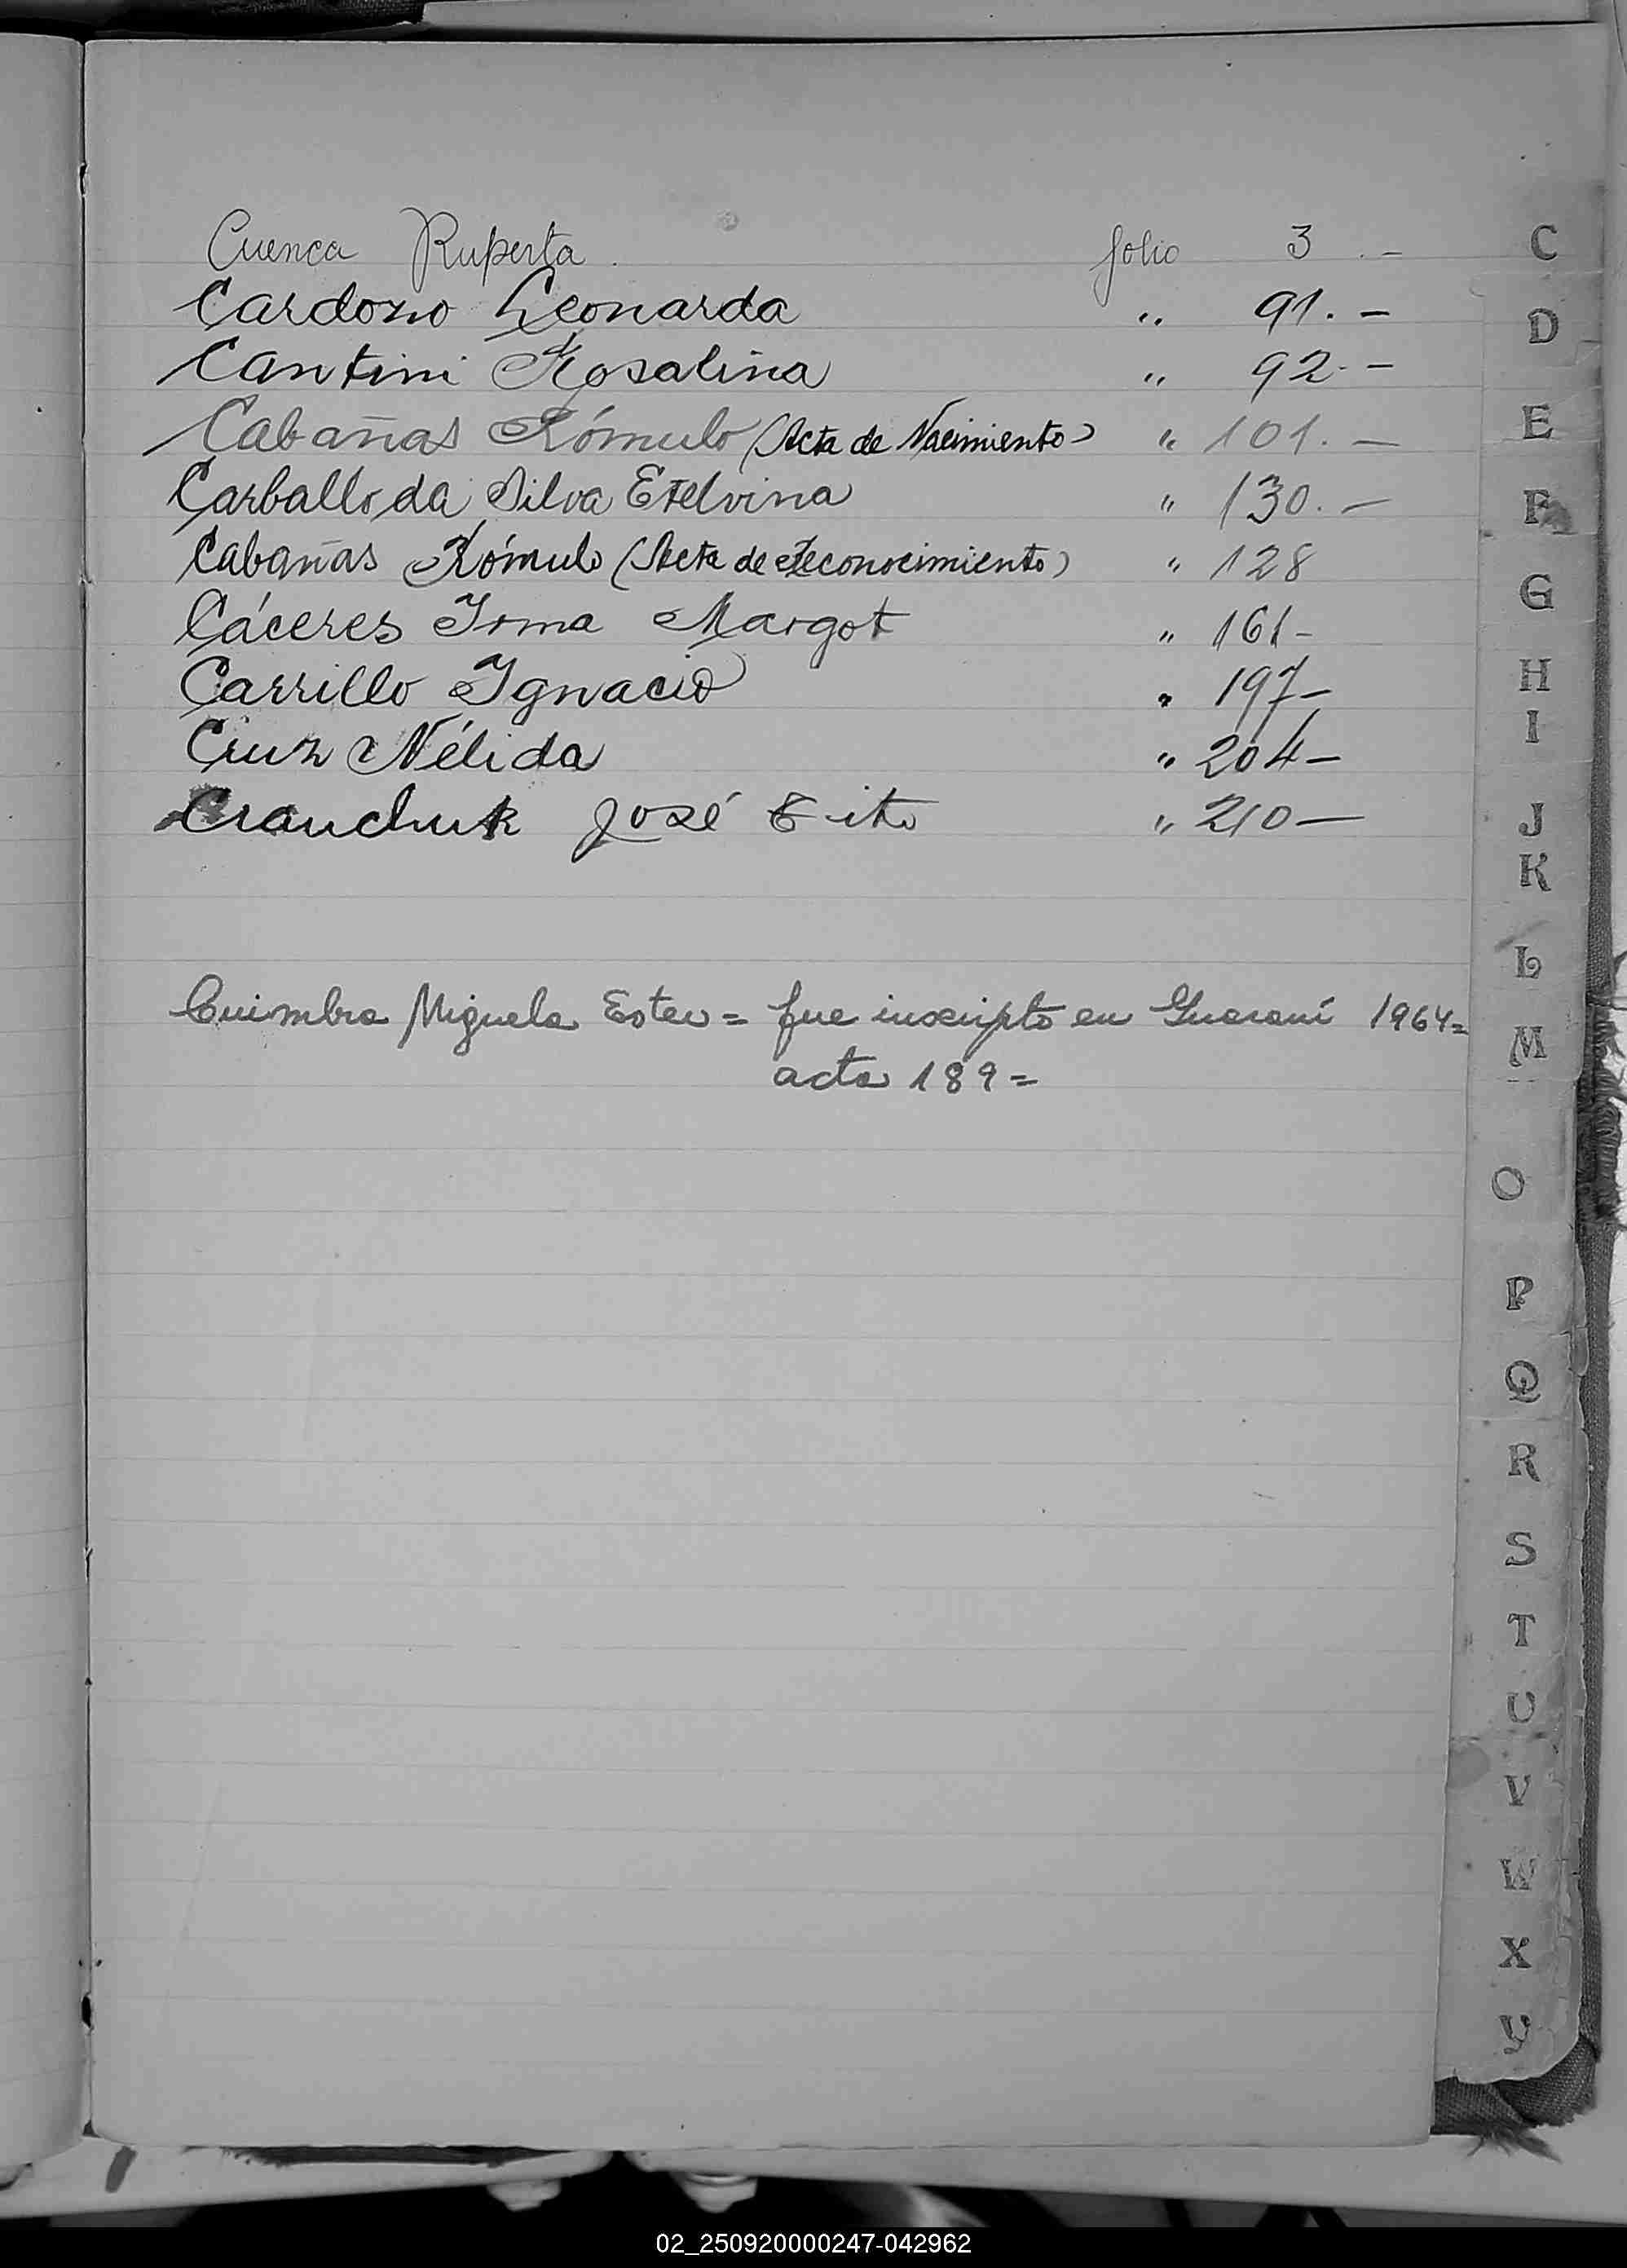 Cuenca Ruperta folio 3.-
Cardozo Leonarda " 91.-
Cantini Rosalina " 92.-
Cabañas Rómulo (Acta de Nacimiento) " 101.-
Carballo da Silva Etelvina " 130.-
Cabañas Rómulo (Acta de Reconocimiento) " 128
Cáceres Irma Margot " 161-
Carrillo Ignacio " 197-
Cruz Nélida " 204-
Cranchuk José Tito " 210-
Cuimbra Miguela Ester= fue inscripto en Guaraní 1964=
acta 189=
C
D
E
F
G
H
I
J
K
L
M
O
P
Q
R
S
T
U
V
W
X
Y
02_250920000247-042962